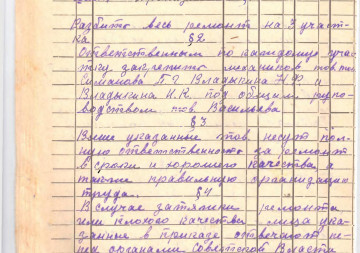 Разбито весь ремонт на 3 участ-
ка
§2-
Ответственным по каждому уча-
стку закрепить механиков тов тов
Симакова Б.Я Владыкина Н.Ф и
Владыкина И.К. под общим руко-
водством тов. Васильева
§3
Выше указанные тов. несут пол-
ную ответственность за ремонт
в сроки и хорошего качества а
также правильную организацию
труда.
§4
В случае затяжки ремонта
или плохого качества лица ука-
занные в приказе отвечают пе-
ред органами Советской Власти